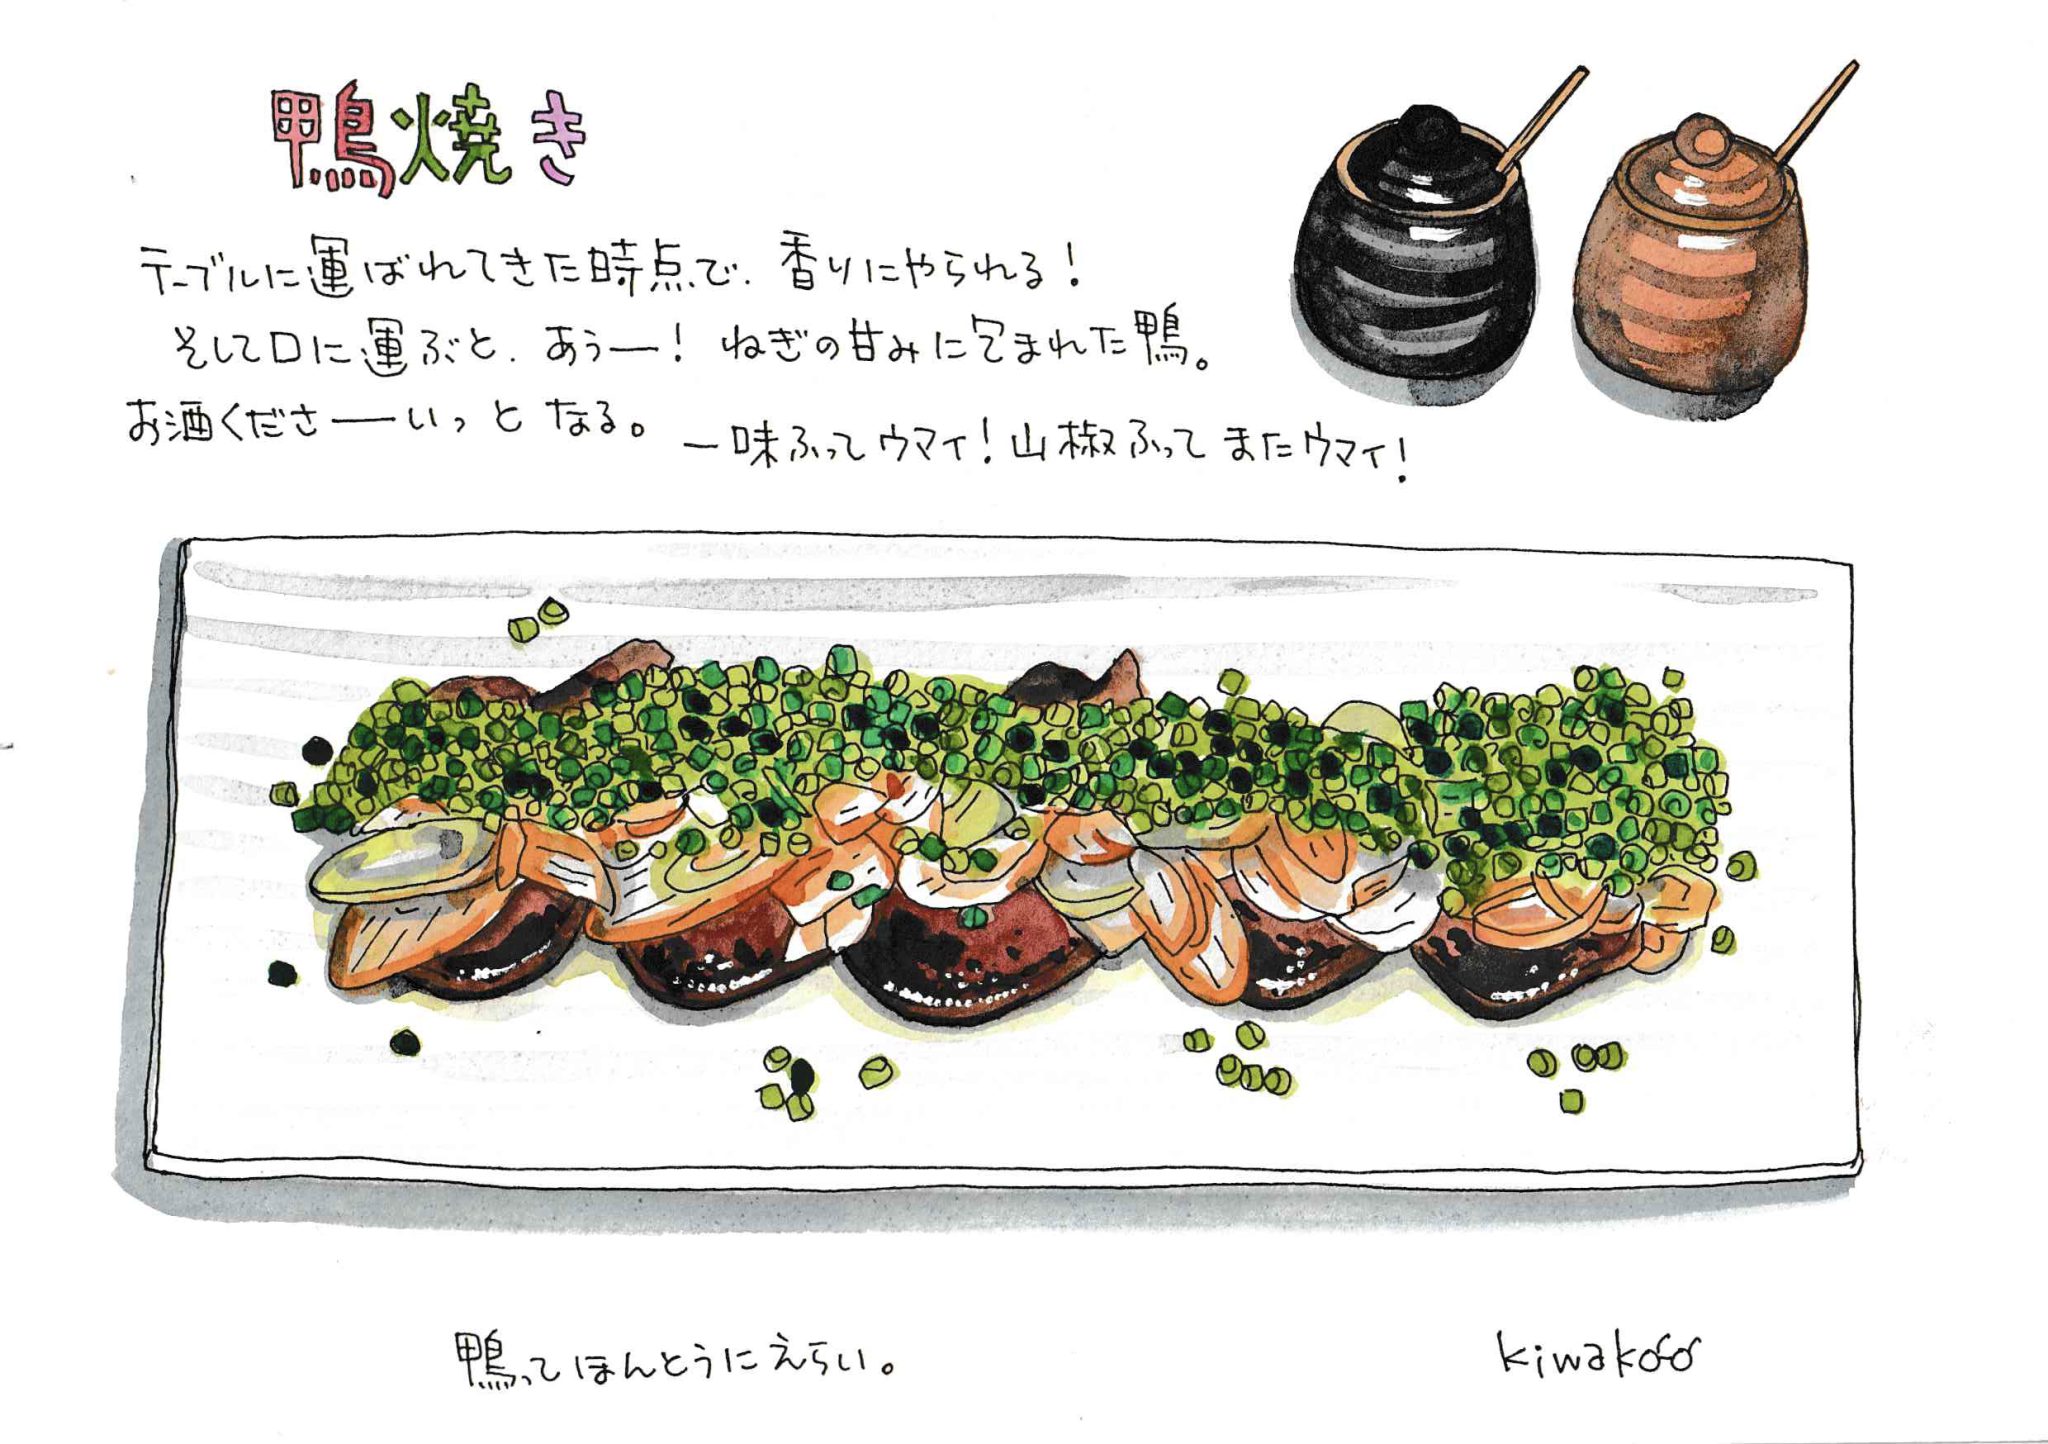 鴨焼き
テーブルに運ばれてきた時点で、香りにやられる!
そして口に運ぶと、あぅー! ねぎの甘みに包まれた鴨。
お酒くださーいっとなる。
一味ふってウマイ!山椒ふってまたウマイ!
鴨ってほんとうにえらい。
kiwakoo